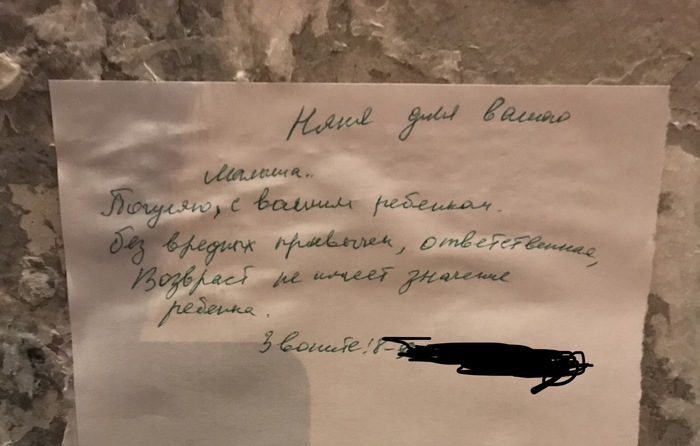 Няня для вашего
малыша..
Погуляю, с вашим ребенком.
Без вредных привычек, ответственная,
Возвраст не имеет значение
ребенка.
Звоните! 8-